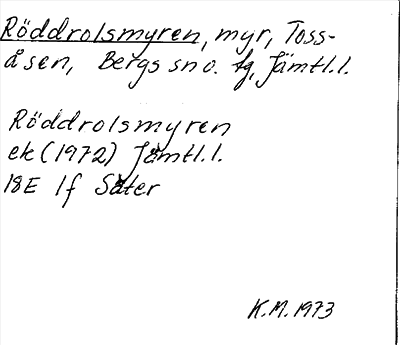 Röddrolsmyren, myr, Toss-
åsen, Bergs sno. tg, Jämtl.l.
Röddrolsmyren
ek (1972) Jämtl.l.
18E 1f Säter
K.M. 1973